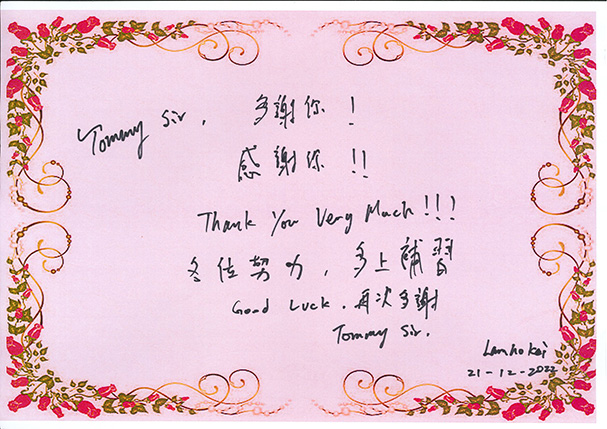 Tommy Sir, 多謝你!
感謝你!!
Thank You Very Much!!!
各位努力,多上補習
Good Luck. 再次多謝
Tommy Sir.
Lam Ho Kei
21-12-2022